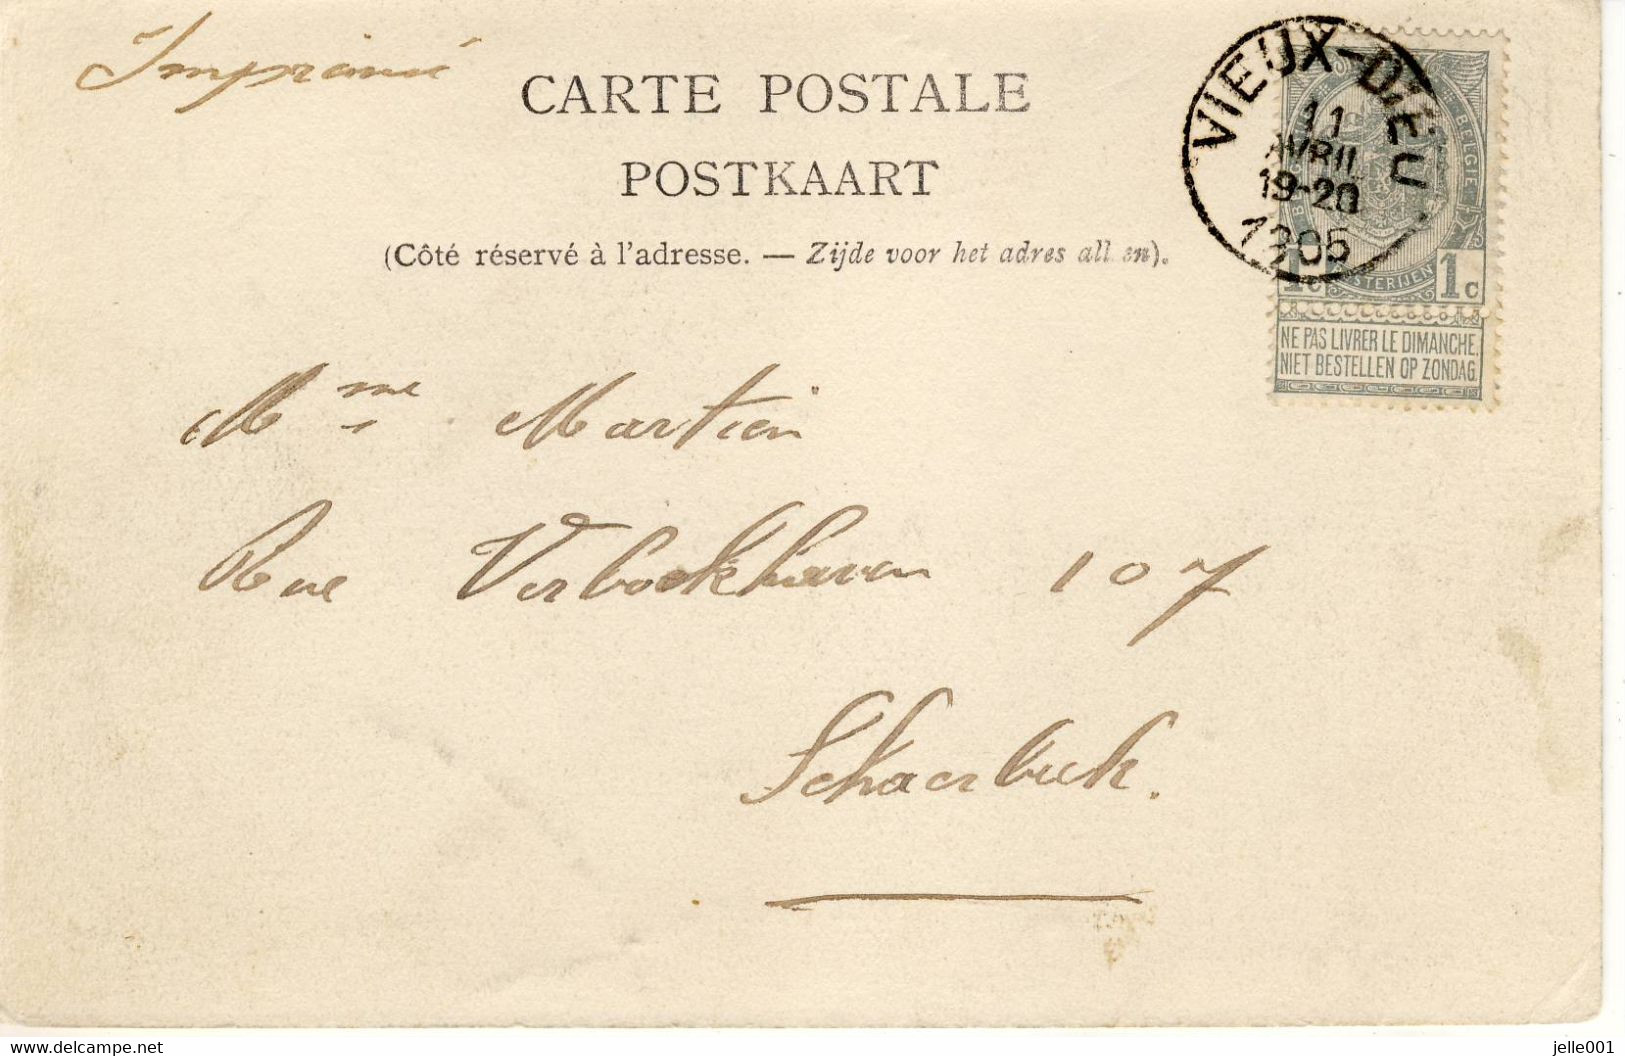 Imprimé
CARTE POSTALE
POSTKAART
(Côté réservé à l'adresse. — Zijde voor het adres all en).
VIEUX-DIEU
11
AVRIL
19-20
1905
BELGIE
1c STERIJEN 1c
NE PAS LIVRER LE DIMANCHE.
NIET BESTELLEN OP ZONDAG
Mme Martien
Rue Verboekhaven 107
Schaerbeek.
www.delcampe.net
jelle001